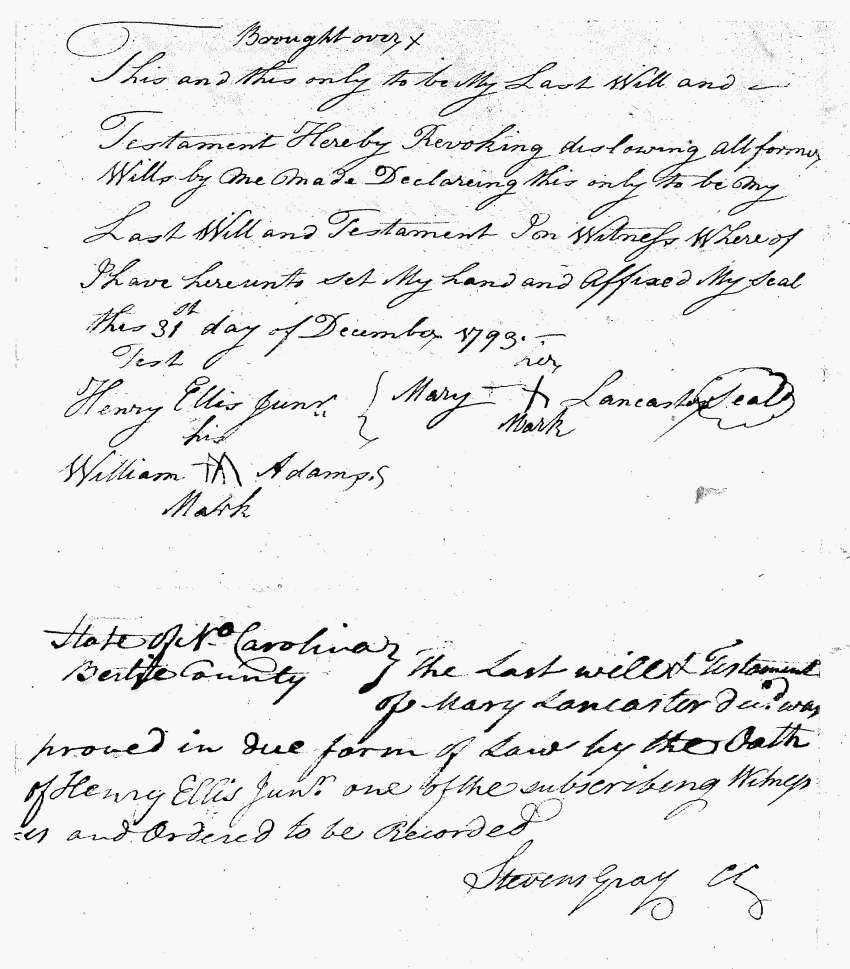 Brought over
This and this only to be My Last Will and
Testament Hereby Revoking dislowing all former
Wills by me made Declareing this only to be my
Last Will and Testament In Witness Where of
I have hereunto set My hand and affixed My Seal
this 31st day of December 1793.
Test
her
Henry Ellis Junr. Mary + Lancaster Seal
Mark
his
William M Adams
Mark
State of No Carolina
Bertie County The Last will & Testament
of Mary Lancaster Decd. was
proved in due form of Law by the Oath
of Henry Ellis Junr. one of the subscribing Witness
=es and Ordered to be Recorded
Stevens Gray CC